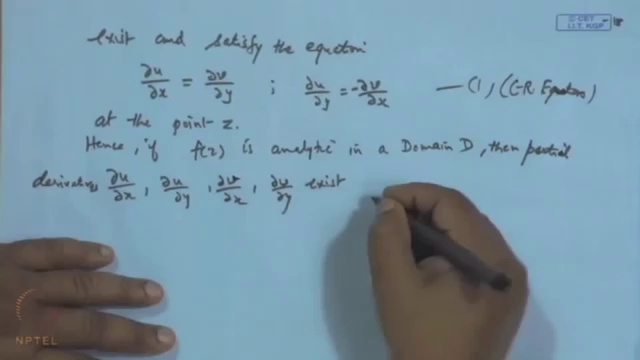 © CET
I.I.T. KGP
exist and satisfy the equation
∂u/∂x = ∂v/∂y ; ∂u/∂y = -∂v/∂x — (1) (C-R. Equations)
at the point z.
Hence, if f(z) is analytic in a Domain D, then partial
derivatives ∂u/∂x, ∂u/∂y, ∂v/∂x, ∂v/∂y exist
NPTEL